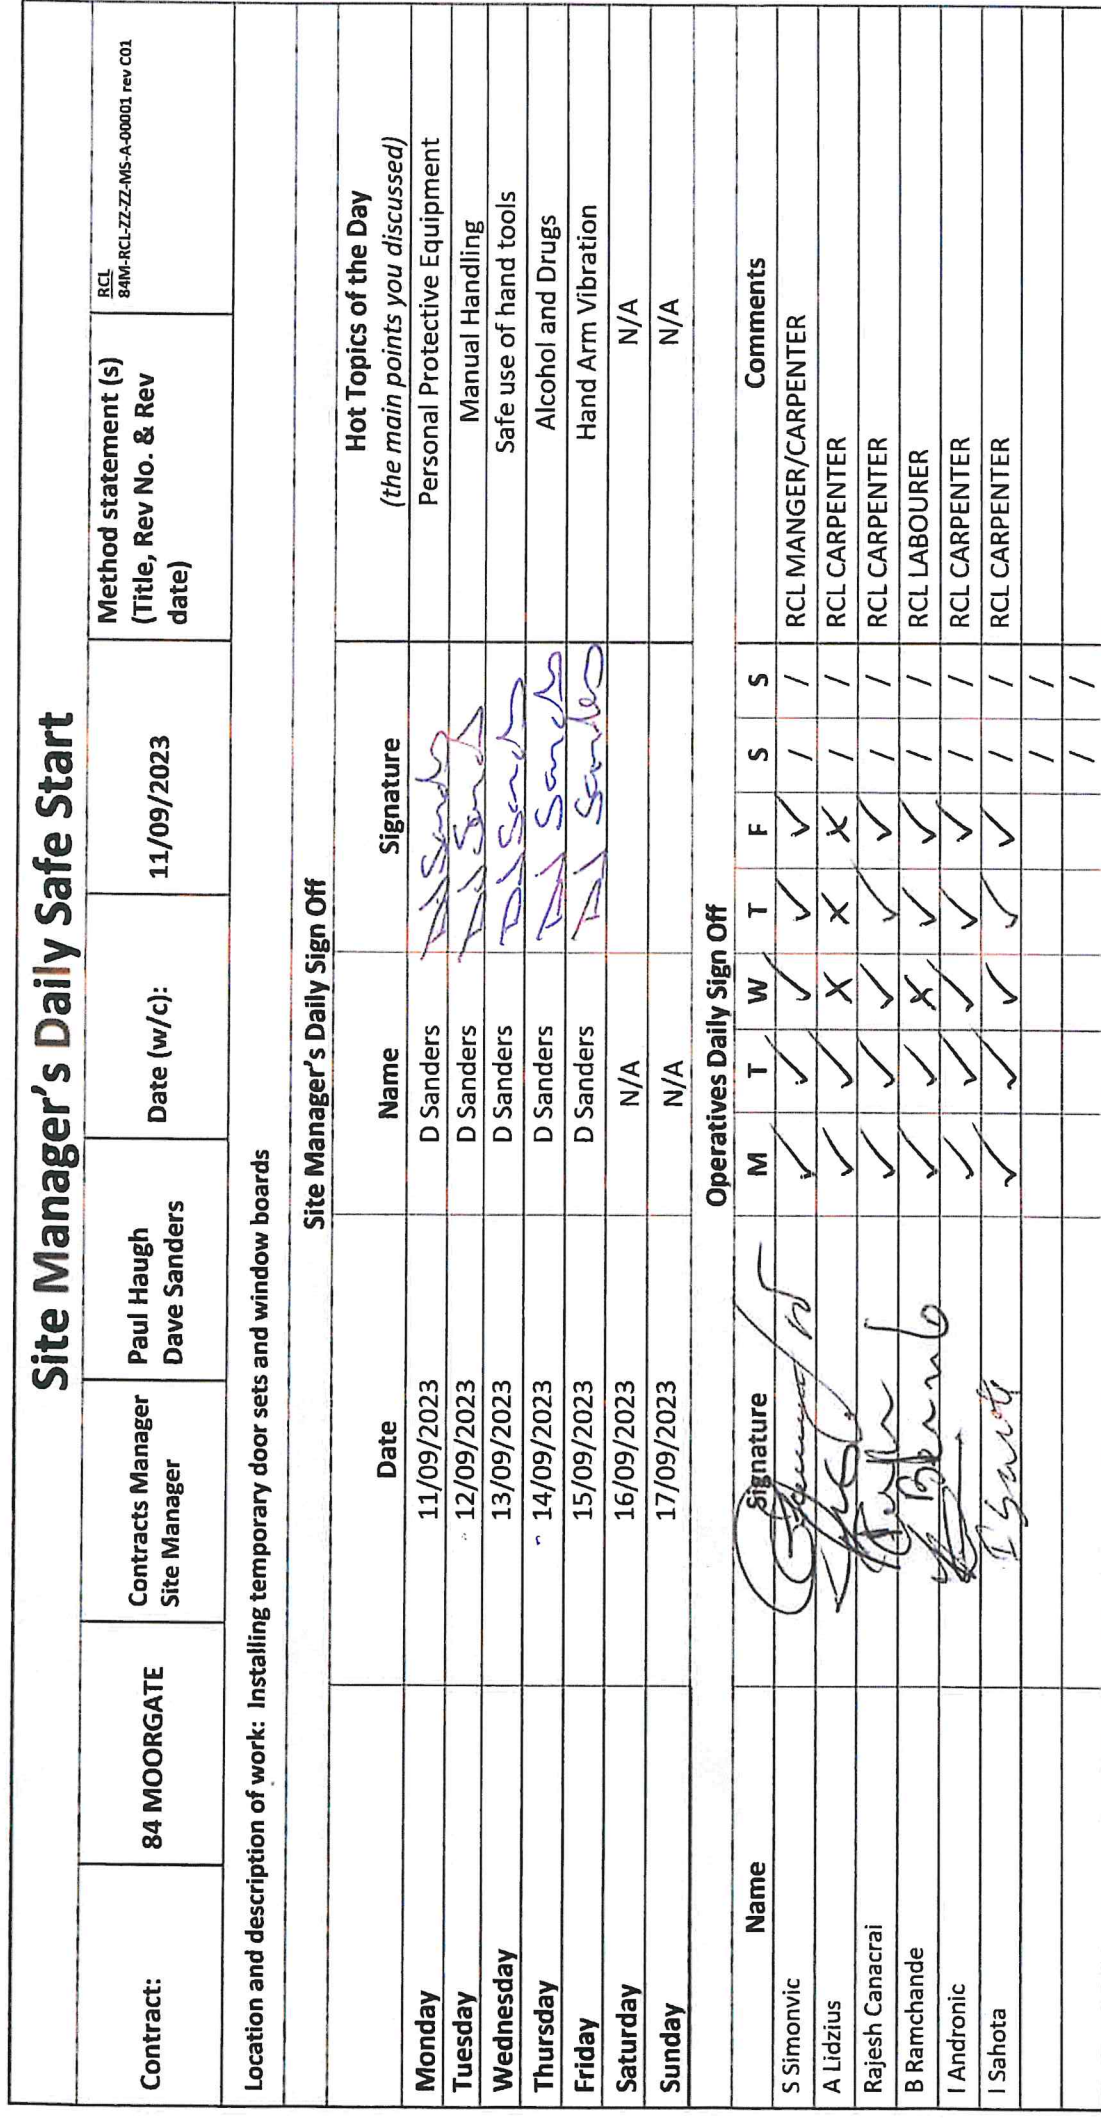 Site Manager's Daily Safe Start
Contract: 84 MOORGATE Contracts Manager Paul Haugh Date (w/c): 11/09/2023 Method statement (s) RCL
Site Manager Dave Sanders (Title, Rev No. & Rev 84M-RCL-ZZ-ZZ-MS-A-00001 rev C01
date)
Location and description of work: Installing temporary door sets and window boards
Site Manager's Daily Sign Off
Date Name Signature Hot Topics of the Day
(the main points you discussed)
Monday 11/09/2023 D Sanders D Sanders Personal Protective Equipment
Tuesday 12/09/2023 D Sanders D Sanders Manual Handling
Wednesday 13/09/2023 D Sanders D Sanders Safe use of hand tools
Thursday 14/09/2023 D Sanders D Sanders Alcohol and Drugs
Friday 15/09/2023 D Sanders D Sanders Hand Arm Vibration
Saturday 16/09/2023 N/A N/A
Sunday 17/09/2023 N/A N/A
Operatives Daily Sign Off
Name Signature M T W T F S S Comments
S Simonvic ✓ ✓ ✓ ✓ ✓ / / RCL MANGER/CARPENTER
A Lidzius ✓ ✓ X X X / / RCL CARPENTER
Rajesh Canacrai ✓ ✓ ✓ ✓ ✓ / / RCL CARPENTER
B Ramchande ✓ ✓ X ✓ ✓ / / RCL LABOURER
I Andronic ✓ ✓ ✓ ✓ ✓ / / RCL CARPENTER
I Sahota I Sahota ✓ ✓ ✓ ✓ ✓ / / RCL CARPENTER
/ /
/ /